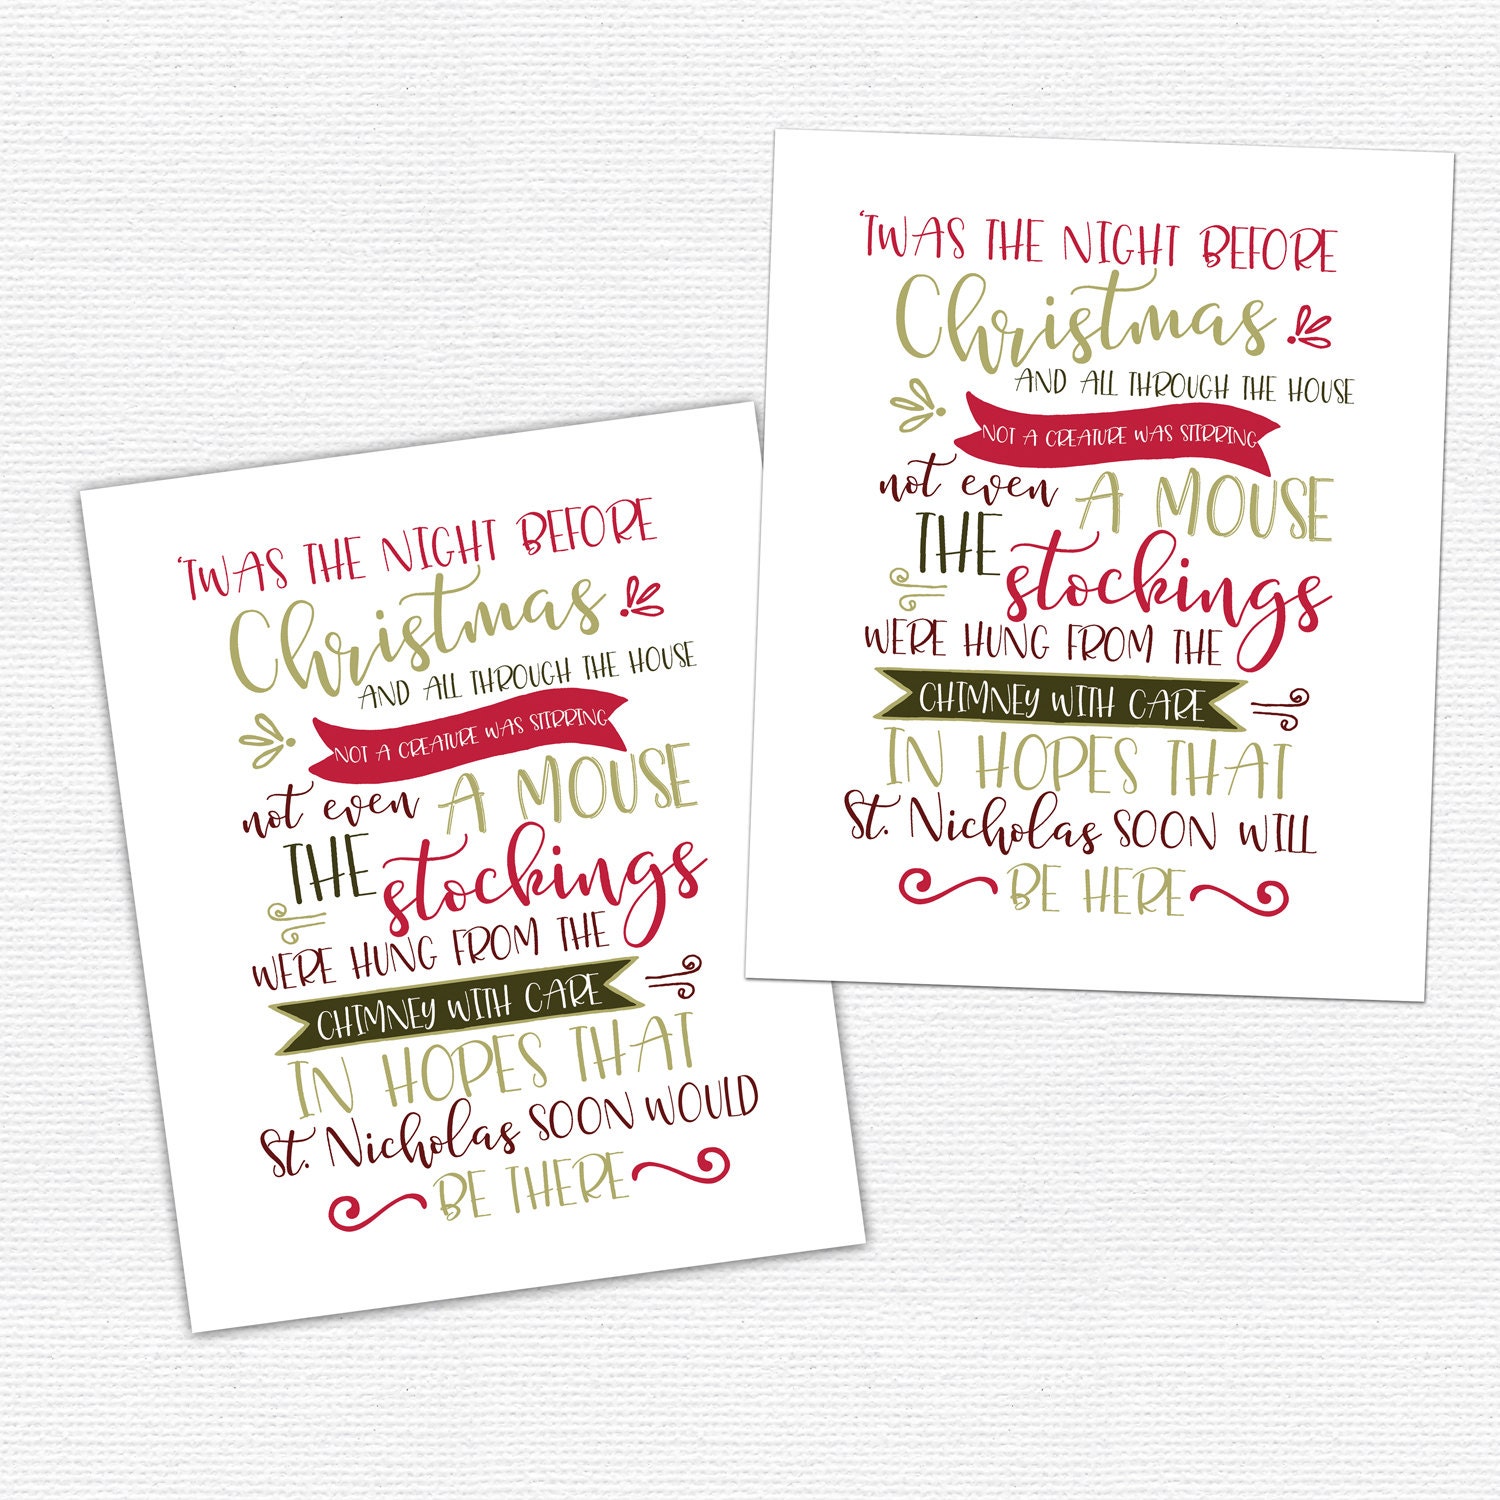 'TWAS THE NIGHT BEFORE
Christmas
AND ALL THROUGH THE HOUSE
NOT A CREATURE WAS STIRRING
not even A MOUSE
THE stockings
WERE HUNG FROM THE
CHIMNEY WITH CARE
IN HOPES THAT
St. Nicholas SOON WOULD
BE THERE
'TWAS THE NIGHT BEFORE
Christmas
AND ALL THROUGH THE HOUSE
NOT A CREATURE WAS STIRRING
not even A MOUSE
THE stockings
WERE HUNG FROM THE
CHIMNEY WITH CARE
IN HOPES THAT
St. Nicholas SOON WILL
BE HERE